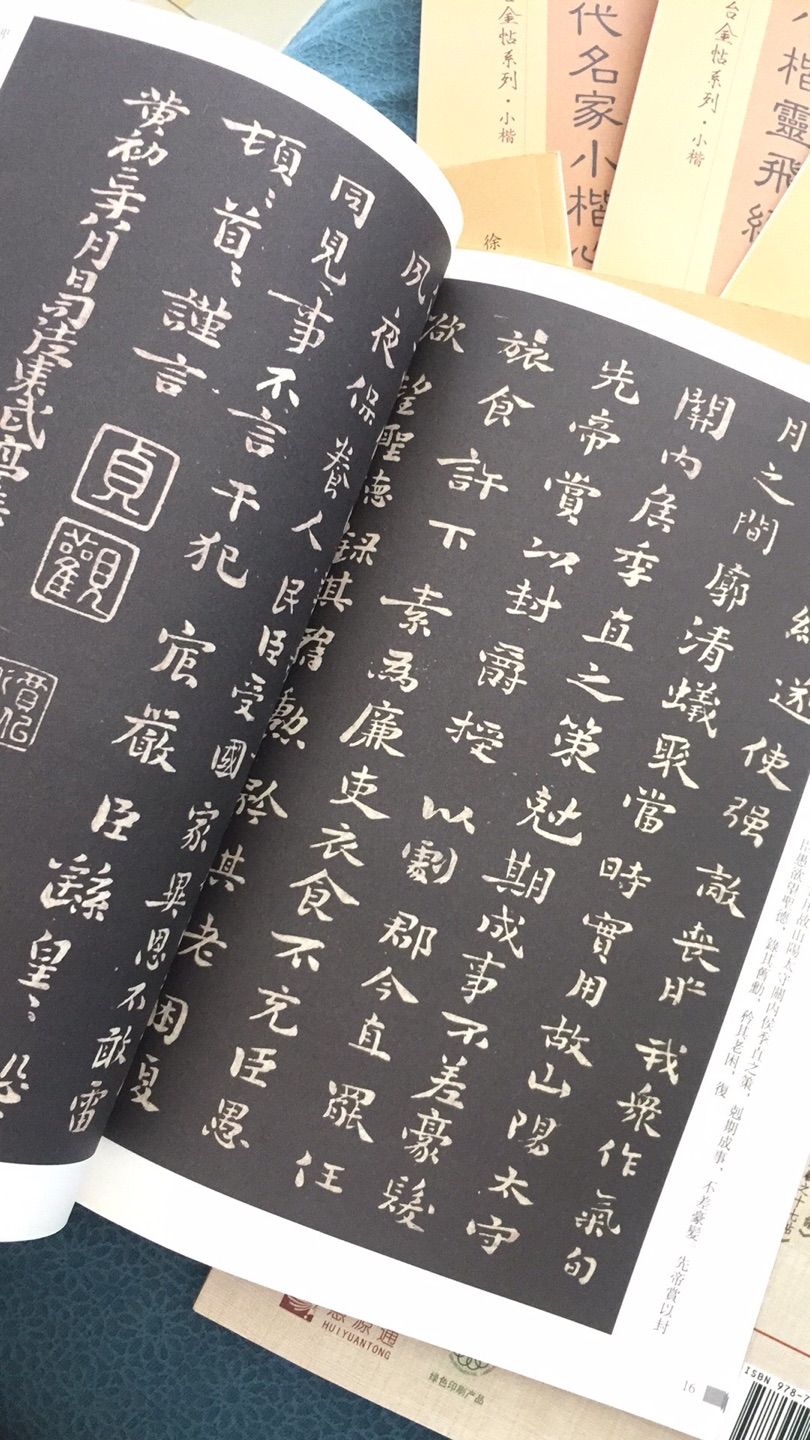 遂使强敵喪胆我衆作氣旬
月之間廓清蟻聚當時實用故山陽太守
關內侯季直之策尅期成事不差豪髮
先帝賞以封爵授以劇郡今直罷任
旅食許下素為廉吏衣食不充臣愚
欲望聖德錄其舊勳矜其老困復
夙夜保養人民臣受國家異恩不敢雷
同見事不言干犯宸嚴臣繇皇〻恐〻
頓〻首〻謹言
黄初二年八月日司徒東武亭
貞觀
故山陽太守關內侯季直之策,尅期成事,不差豪髮 先帝賞以封
臣愚欲望聖德,錄其舊勳,矜其老困,復
16
代名家小楷
台金帖系列·小楷
小楷靈飛經
台金帖系列·小楷
徐
HUIYUANTONG
源通
绿色印刷产品
ISBN 978-7